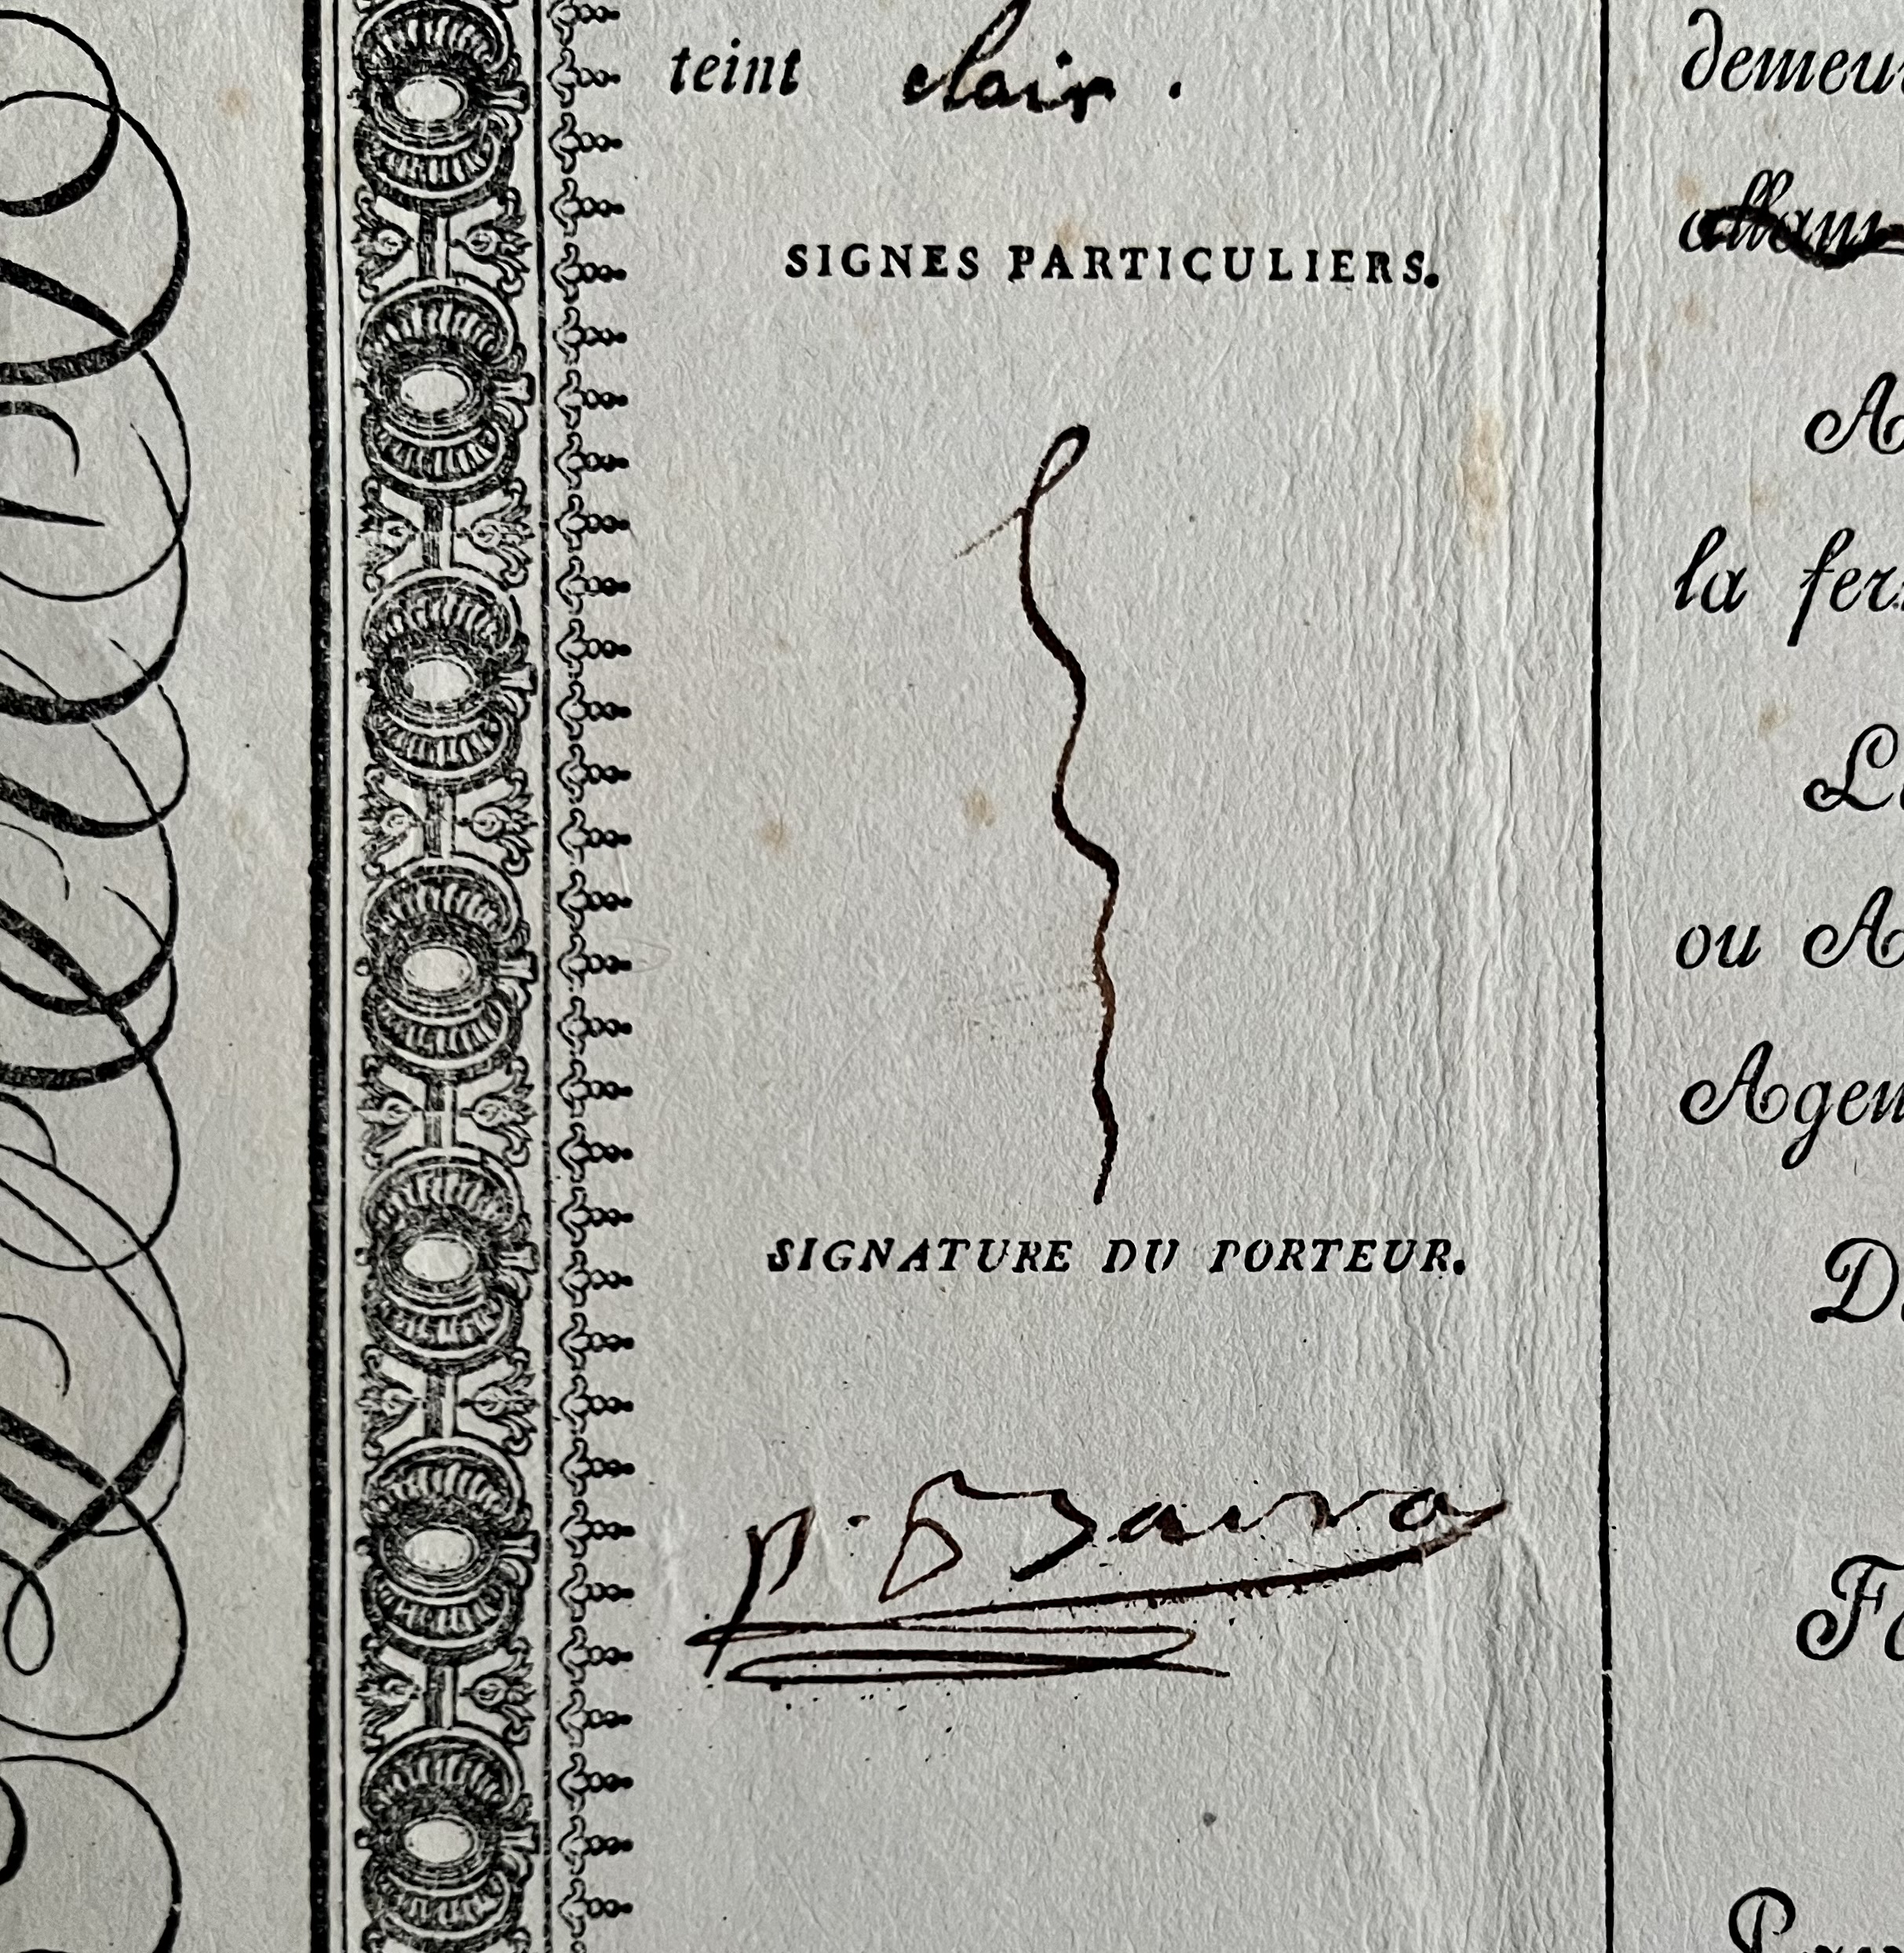 teint clair.
SIGNES PARTICULIERS.
SIGNATURE DU PORTEUR.
p.
demeu
allant
A
la fer
L
ou A
Agen
D
F
P